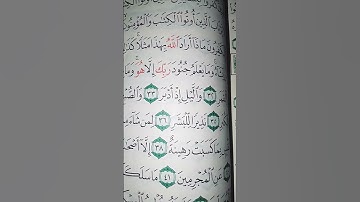 ٱلَّذِينَ أُوتُوا۟ ٱلْكِتَٰبَ وَٱلْمُؤْمِنُو
فِرُونَ مَاذَآ أَرَادَ ٱللَّهُ بِهَٰذَا مَثَلًا كَذَ
وَمَا يَعْلَمُ جُنُودَ رَبِّكَ إِلَّا هُوَ وَمَا
مَرِ ٣٢ وَٱلَّيْلِ إِذْ أَدْبَرَ ٣٣ وَٱلصُّ
٣٥ نَذِيرًا لِّلْبَشَرِ ٣٦ لِمَن شَآءَ
بِمَا كَسَبَتْ رَهِينَةٌ ٣٨ إِلَّآ أَصْحَٰ
عَنِ ٱلْمُجْرِمِينَ ٤١ مَا سَلَكَ